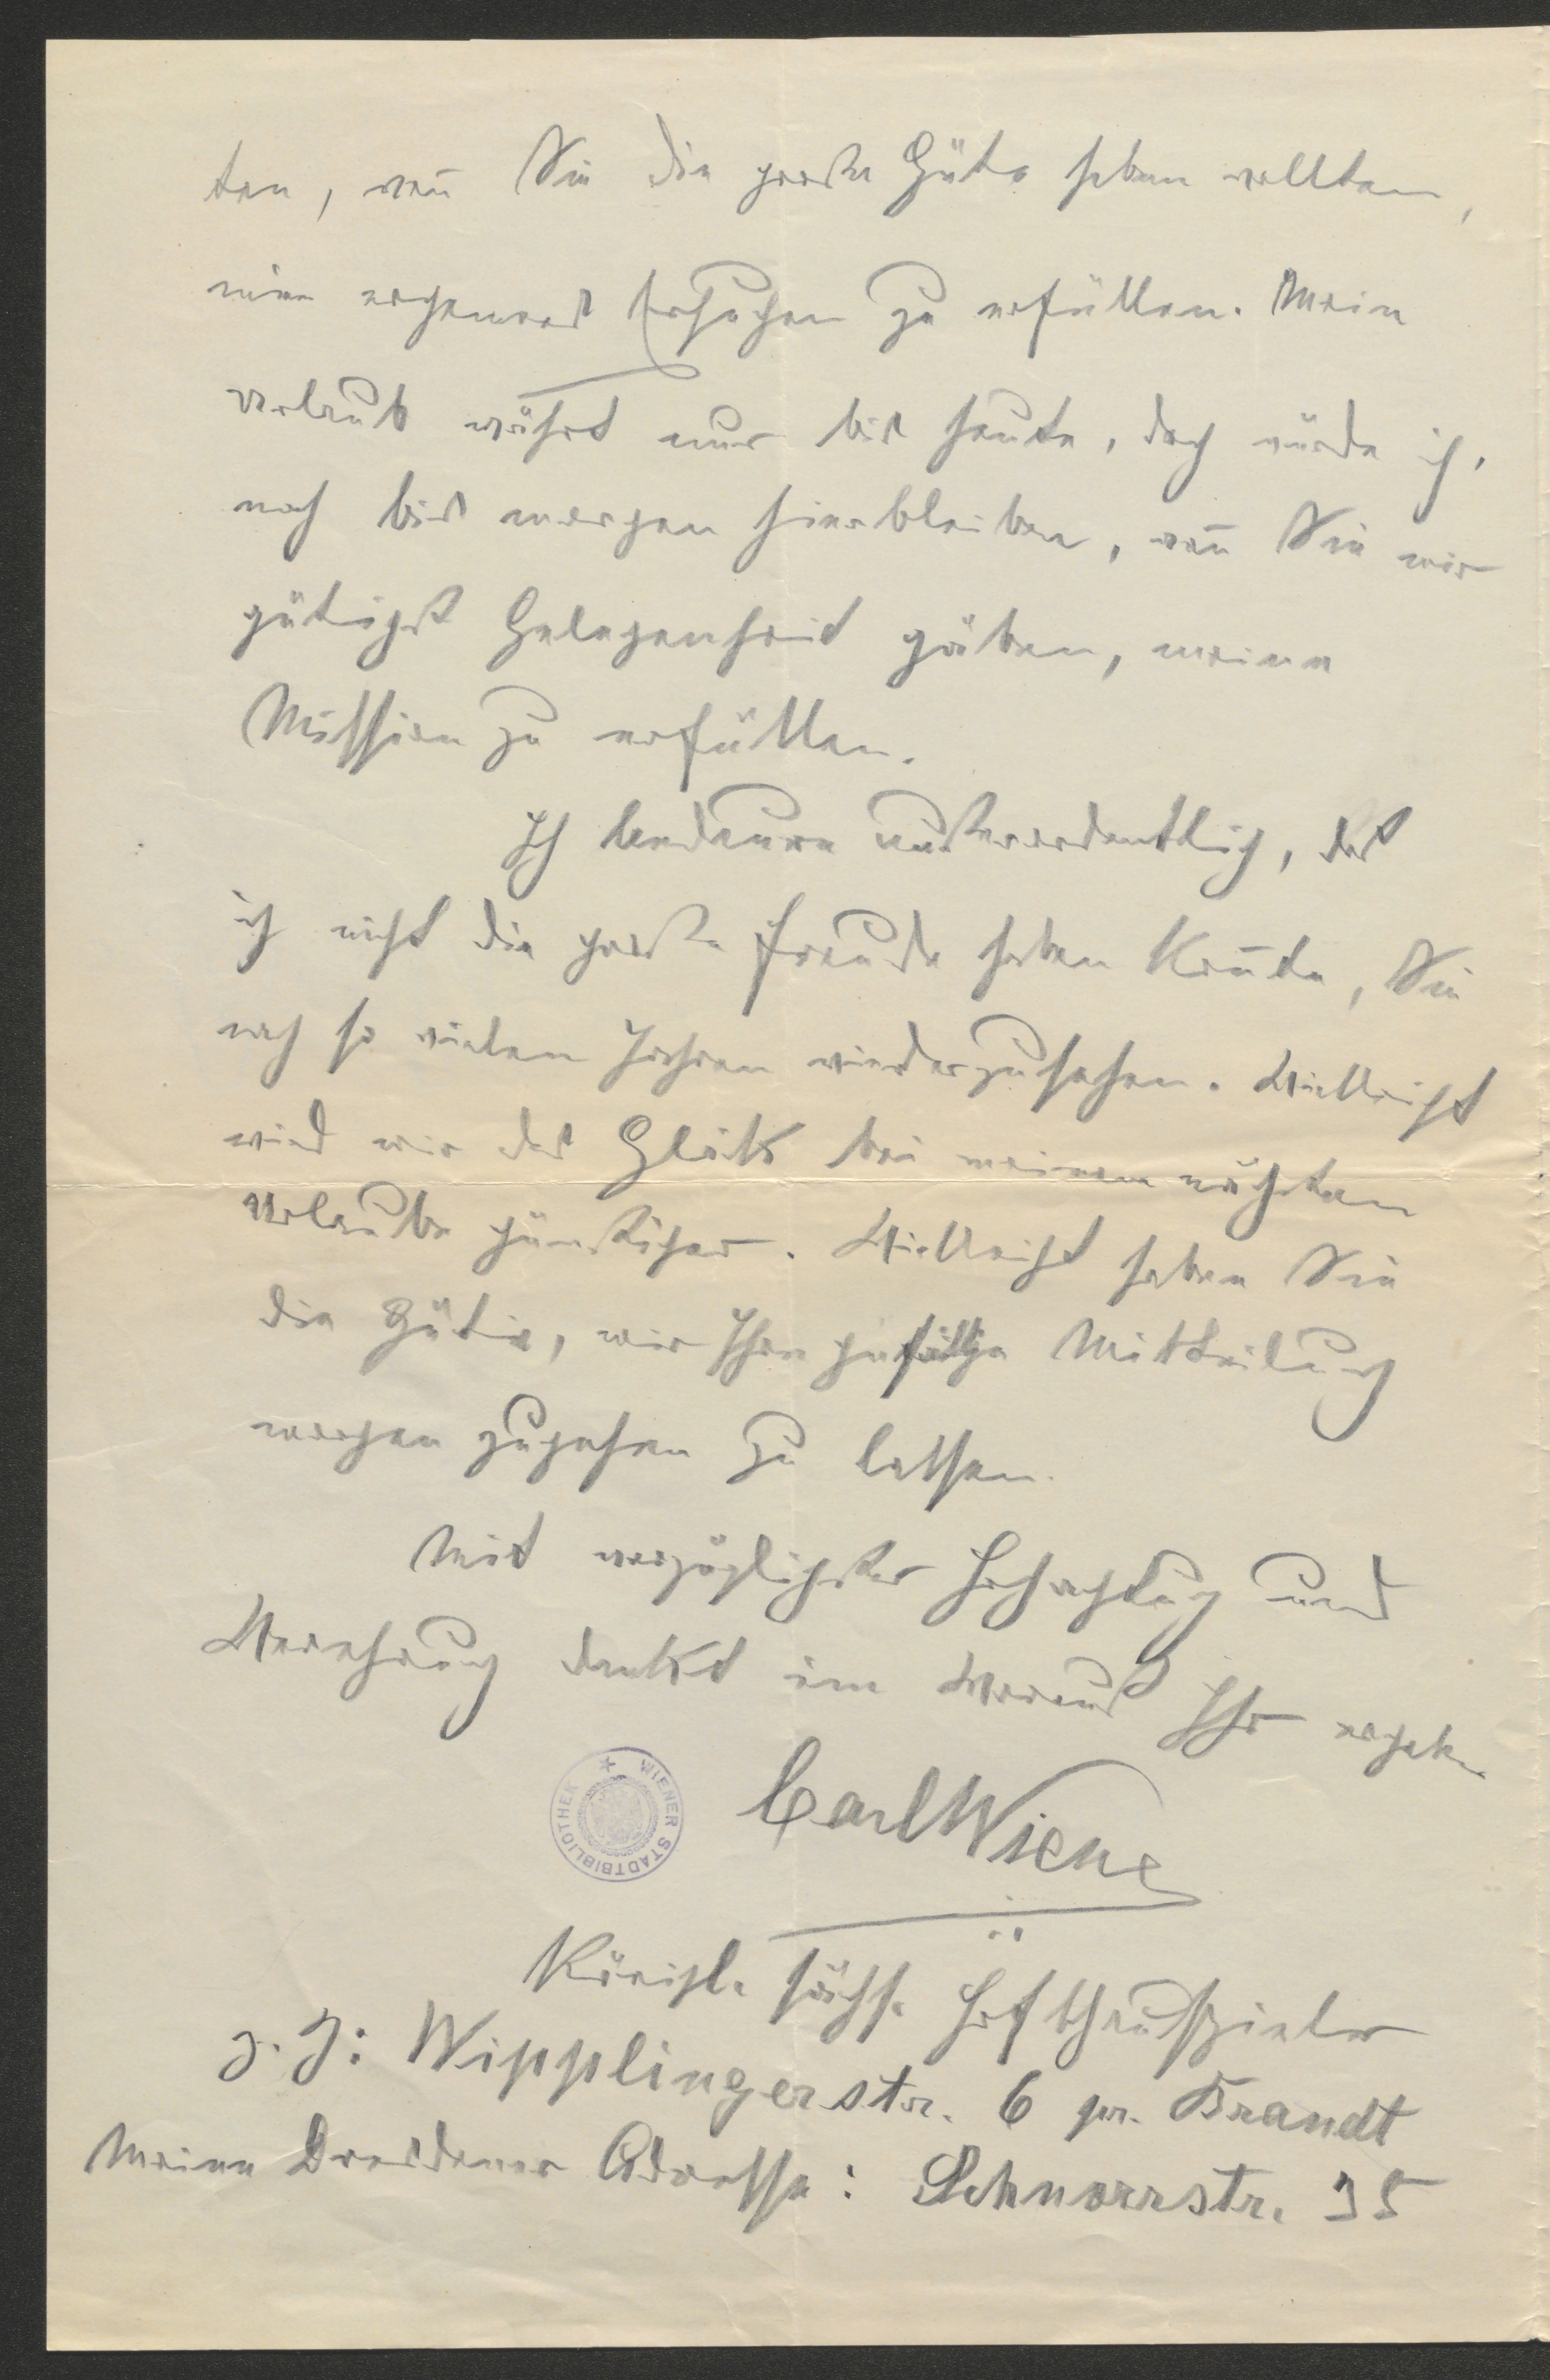 ten, weñ Sie die große Güte haben wollten,
mein ergebenes Ersuchen zu erfüllen. Mein
Urlaub währt nur bis heute, doch würde ich,
noch bis morgen hierbleiben, weñ Sie mir
gütigst Gelegenheit gäben, meine
Mission zu erfüllen.
Ich bedaure außerordentlich, daß
ich nicht die große Freude haben koñte, Sie
nach so vielen Jahren wiederzusehen. Vielleicht
wird mir das Glück bei meinem nächsten
Urlaube günstiger. Vielleicht haben Sie
die Güte, mir Ihre gefällige Mitteilung
morgen zugehen zu lassen.
Mit vorzüglichster Hochachtung und
Verehrung dankt im Voraus Ihr ergeb.
Carl Wiene
WIENER STADTBIBLIOTHEK
Königl. sächs. Hofschauspieler
z. Z: Wipplingerstr. 6 pr. Brandt
Meine Dresdener Adresse: Schnorrstr. 35